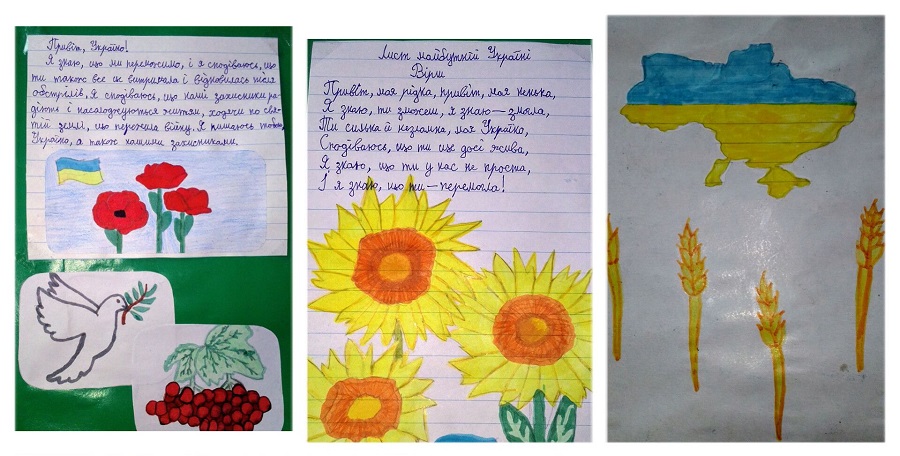 Привіт, Україно!
Я знаю, що ми переможемо, і я сподіваюсь, що
ти також все це витримала і відновилась після
обстрілів. Я сподіваюсь, що наші захисники ра-
діють і насолоджуються життям, ходячи по свя-
тій землі, що пережила війну. Я пишаюсь тобою,
Україно, а також нашими захисниками.
Лист майбутній Україні
Вірш
Привіт, моя рідна, привіт, моя ненька,
Я знаю, ти зможеш, я знаю — змогла,
Ти сильна й незламна, моя Україно,
Сподіваюсь, що ти ще досі жива,
Я знаю, що ти у нас не проста,
І я знаю, що ти — перемогла!